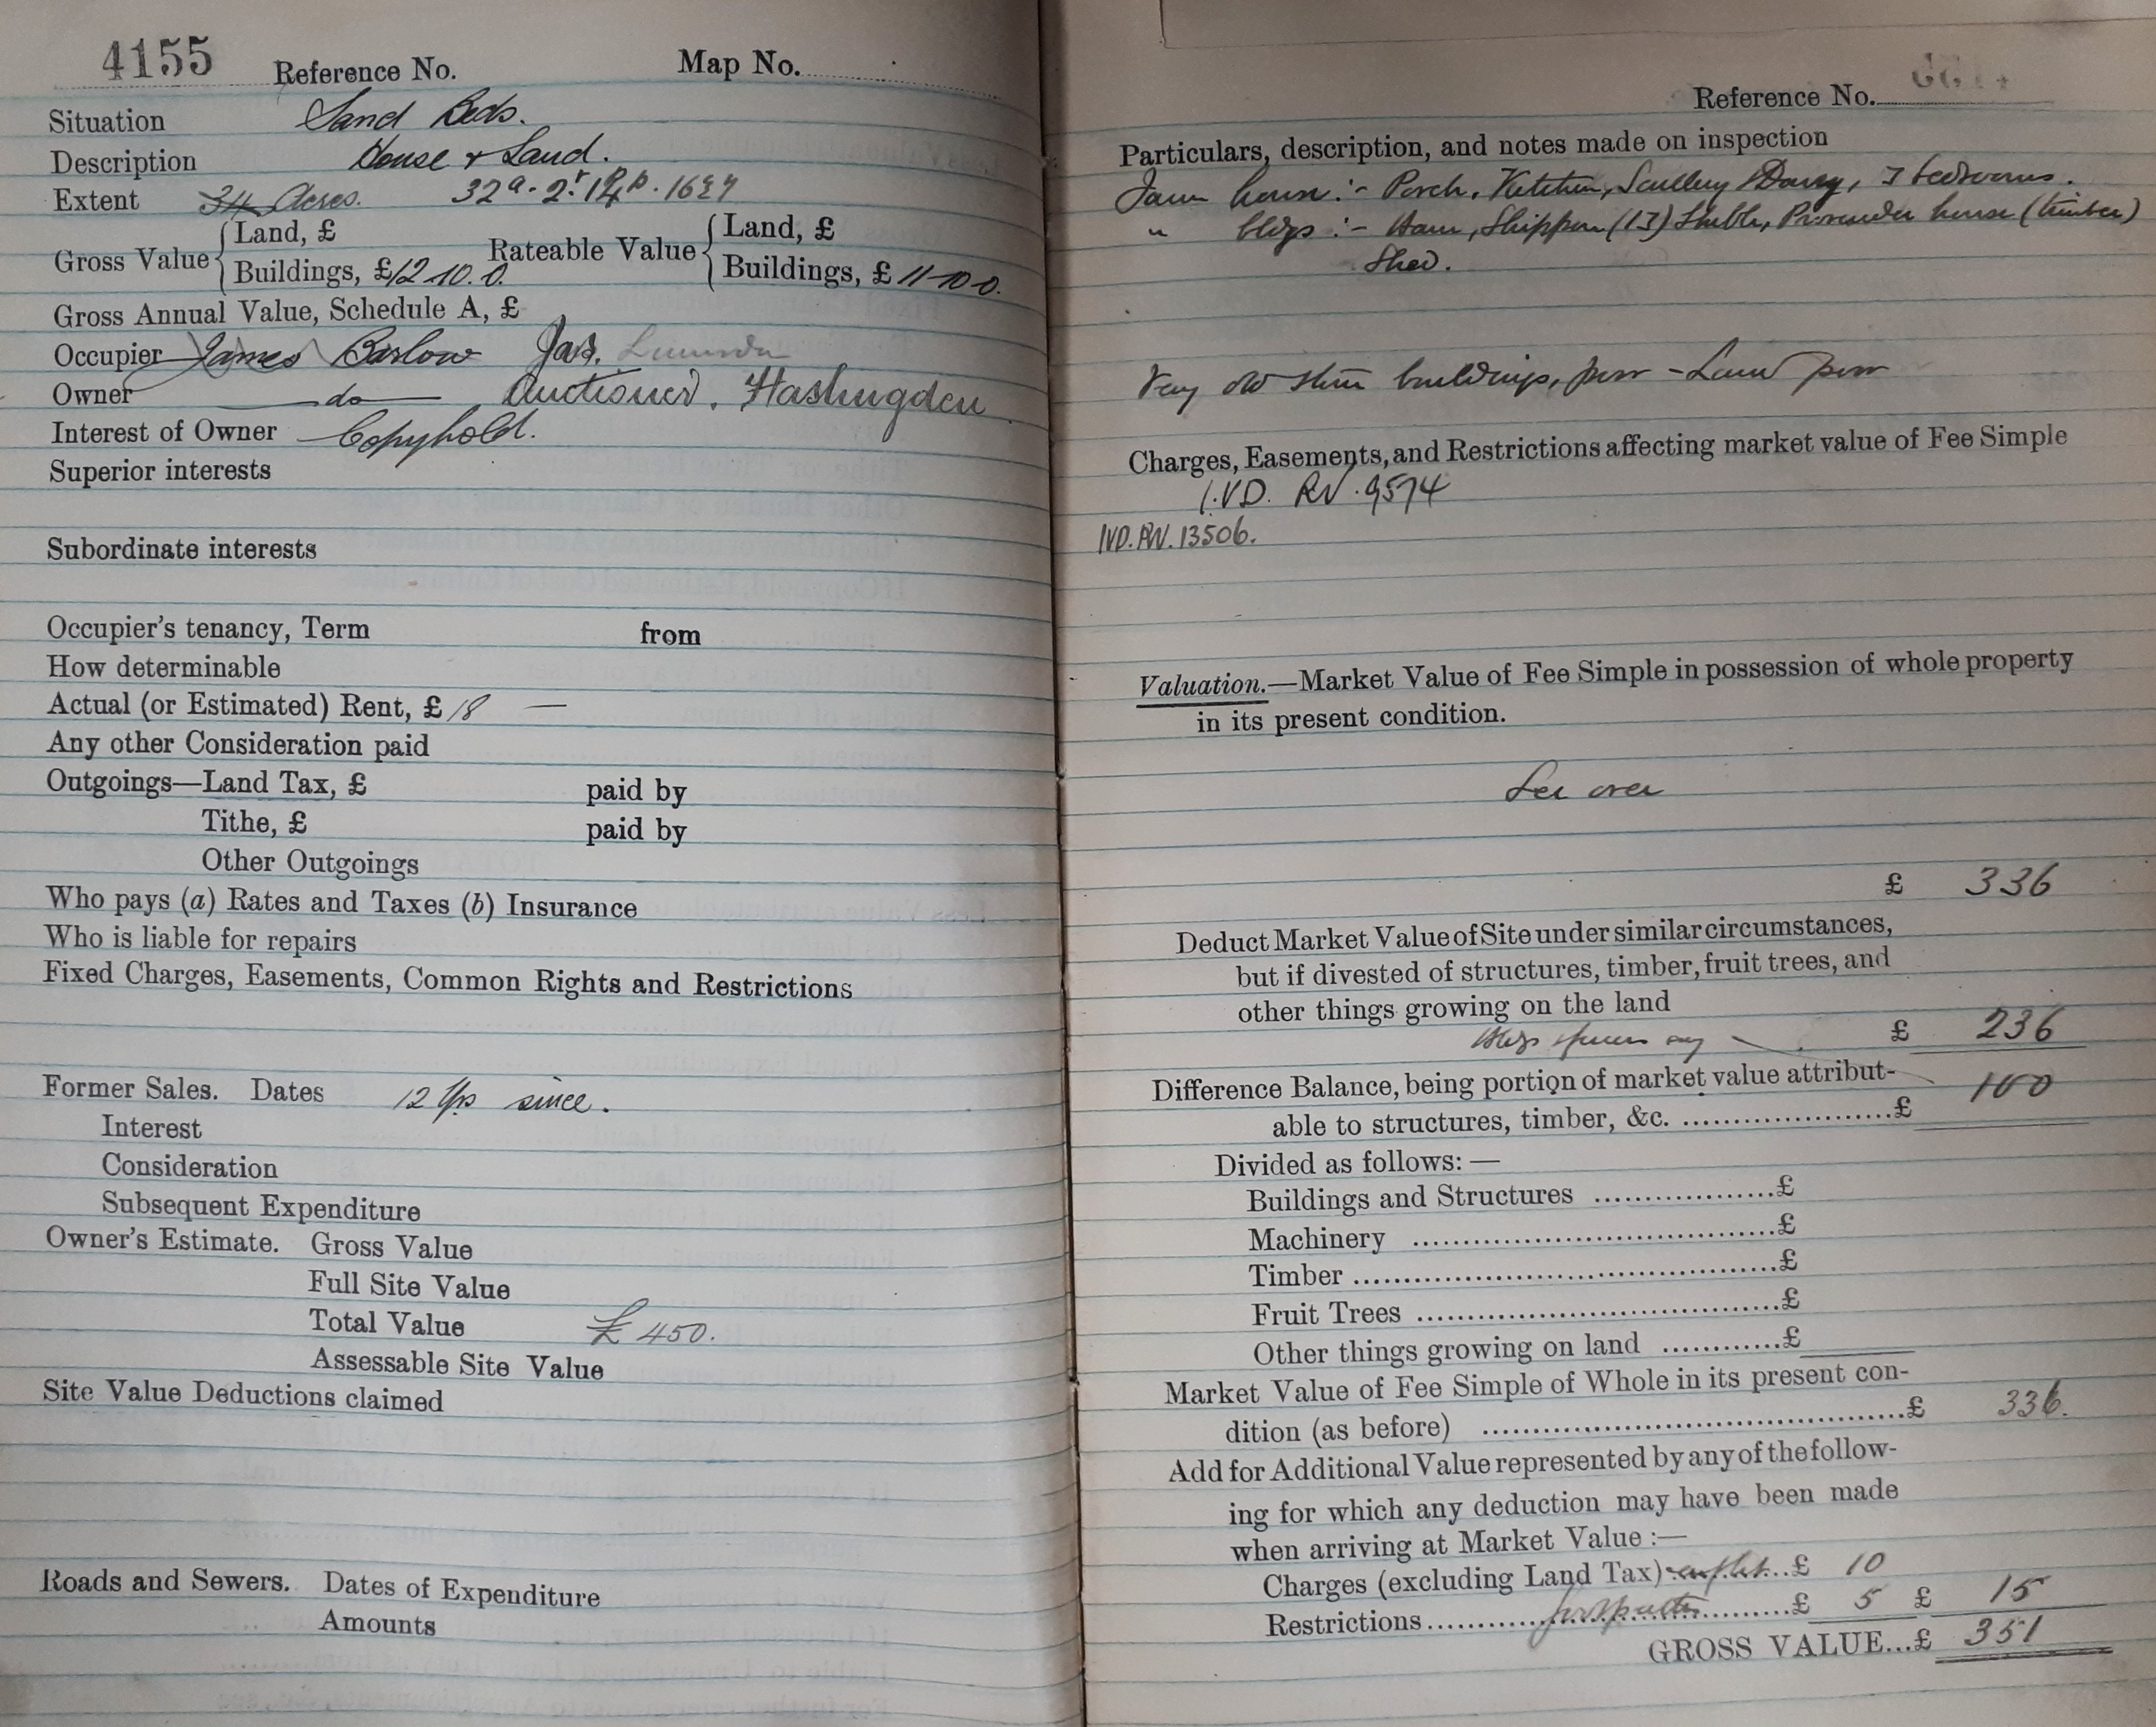 4155 Reference No. Map No.
Situation Sand Beds.
Description House & Land.
Extent 34 Acres. 32a. 2r. 14p.
Gross Value { Land, £ Rateable Value { Land, £
Buildings, £12.10.0. Buildings, £ 11-10-0.
Gross Annual Value, Schedule A, £
Occupier James Barlow Jas.
Owner do Auctioneer, Haslingden
Interest of Owner Copyhold.
Superior interests
Subordinate interests
Occupier's tenancy, Term from
How determinable
Actual (or Estimated) Rent, £ 18 —
Any other Consideration paid
Outgoings—Land Tax, £ paid by
Tithe, £ paid by
Other Outgoings
Who pays (a) Rates and Taxes (b) Insurance
Who is liable for repairs
Fixed Charges, Easements, Common Rights and Restrictions
Former Sales. Dates 12 Yrs since.
Interest
Consideration
Subsequent Expenditure
Owner's Estimate. Gross Value
Full Site Value
Total Value £ 450.
Assessable Site Value
Site Value Deductions claimed
Roads and Sewers. Dates of Expenditure
Amounts
Reference No.
Particulars, description, and notes made on inspection
Farm house :- Porch, Kitchen, Scullery & Dairy, 3 bedrooms.
" bldgs :- Barn, Shippon (13) Stable, Provender house (timber)
Shed.
Very old stone buildings, poor - Land poor
Charges, Easements, and Restrictions affecting market value of Fee Simple
I.V.D. RV. 9574
IVD. RV. 13506.
Valuation.—Market Value of Fee Simple in possession of whole property
in its present condition.
See over
£ 336
Deduct Market Value of Site under similar circumstances,
but if divested of structures, timber, fruit trees, and
other things growing on the land
Bldgs £ 236
Difference Balance, being portion of market value attribut-
able to structures, timber, &c. ....................£ 100
Divided as follows: —
Buildings and Structures ..................£
Machinery ....................................£
Timber ..........................................£
Fruit Trees ....................................£
Other things growing on land ............£
Market Value of Fee Simple of Whole in its present con-
dition (as before) ..........................................£ 336.
Add for Additional Value represented by any of the follow-
ing for which any deduction may have been made
when arriving at Market Value :—
Charges (excluding Land Tax) £ 10
Restrictions £ 5 £ 15
GROSS VALUE...£ 351